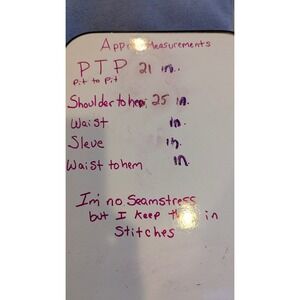 Appr Measurements
PTP 21 in.
Pit to Pit
Shoulder to hem 25 in.
Waist in.
Sleve in.
Waist to hem in.
I'm no Seamstress
but I keep in
Stitches